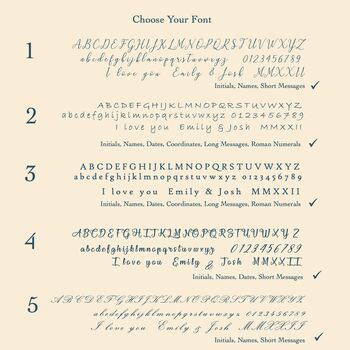 Choose Your Font
1
ABCDEFGHIJKLMNOPQRSTUVWXYZ
abcdefghijklmnopqrstuvwxyz 0123456789
I love you Emily & Josh MMXXII
Initials, Names, Short Messages ✓
2
ABCDEFGHIJKLMNOPQRSTUVWXYZ
abcdefghijklmnopqrstuvwxyz 0123456789
I love you Emily & Josh MMXXII
Initials, Names, Dates, Coordinates, Long Messages, Roman Numerals ✓
3
ABCDEFGHIJKLMNOPQRSTUVWXYZ
abcdefghijklmnopqrstuvwxyz 0123456789
I love you Emily & Josh MMXXII
Initials, Names, Dates, Coordinates, Long Messages, Roman Numerals ✓
4
ABCDEFGHIJKLMNOPQRSTUVWXYZ
abcdefghijklmnopqrstuvwxyz 0123456789
I love you Emily & Josh MMXXII
Initials, Names, Dates, Short Messages ✓
5
ABCDEFGHIJKLMNOPQRSTUVWXYZ
abcdefghijklmnopqrstuvwxyz 0123456789
I love you Emily & Josh MMXXII
Initials, Names, Short Messages ✓